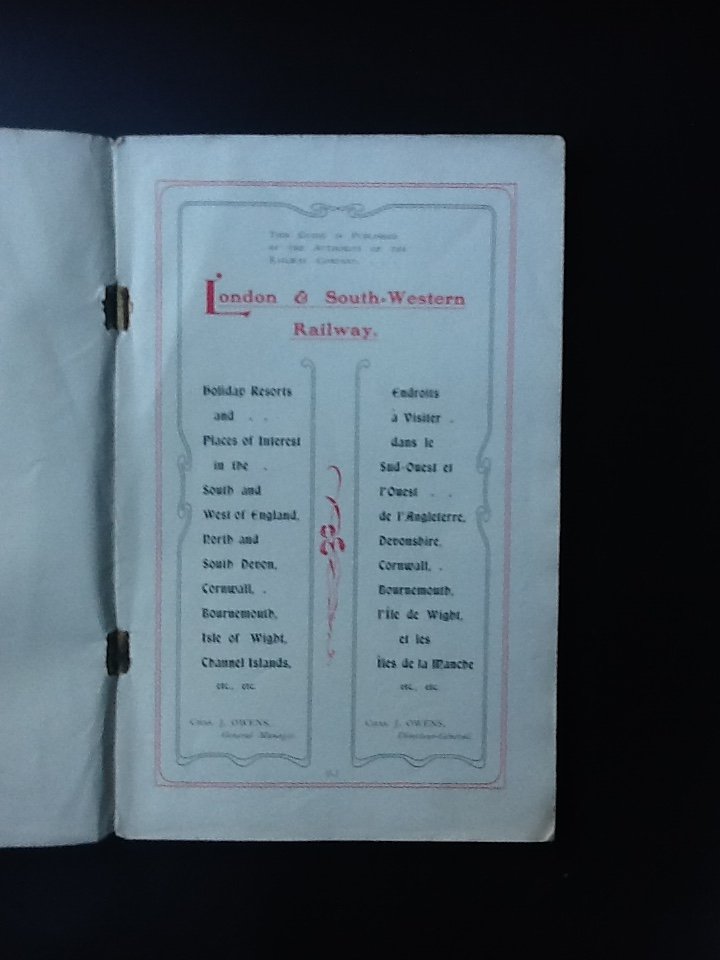 This Guide is Published
by the Authority of the
Railway Company.
London & South-Western
Railway.
Holiday Resorts
and . .
Places of Interest
in the .
South and
West of England,
North and
South Devon,
Cornwall, .
Bournemouth,
Isle of Wight,
Channel Islands,
etc., etc.
Chas. J. OWENS,
General Manager.
Endroits
à Visiter .
dans le
Sud-Ouest et
l'Ouest . .
de l'Angleterre,
Devonshire,
Cornwall, .
Bournemouth,
l'Île de Wight,
et les
Îles de la Manche
etc., etc.
Chas. J. OWENS,
Directeur-Général.